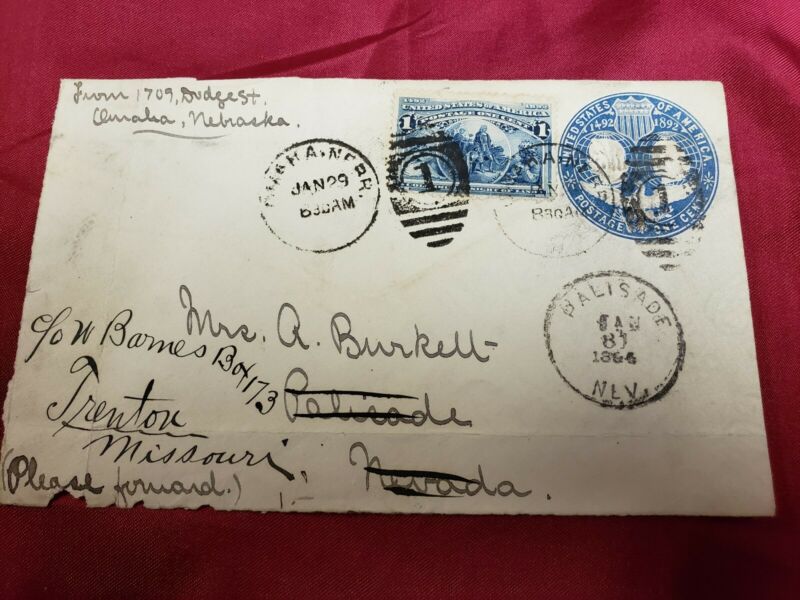 From 1709, Dodge St.
Omaha, Nebraska.
OMAHA, NEBR.
JAN 29
830AM
1
1492 1892
UNITED STATES OF AMERICA
POSTAGE ONE CENT
1 1
UNITED STATES OF AMERICA
1492 1892
POSTAGE ONE CENT
830AM
1
PALISADE
JAN
31
NEV.
Mrs. A. Burkett
c/o W Barnes Box 173
Palisade
Trenton
Missouri.
Nevada.
(Please forward.)